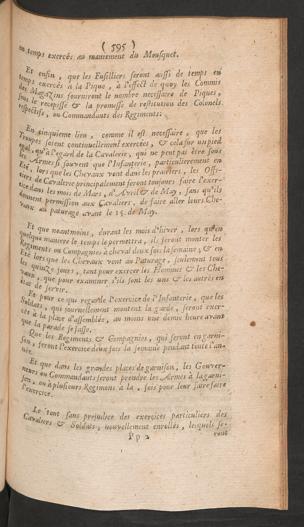 ( 595 )
en temps exercés au maniement du Mousquet.
Et enfin, que les Fusilliers seront aussi de temps en
temps exercés à la Pique, à l'effect de quoy les Commis
des Magazins fourniront le nombre necessaire de Piques,
sous le recepissé & la promesse de restitution des Colonels
respectifs, ou Commandants des Regiments.
En cinquieme lieu, comme il est necessaire, que les
Troupes soient continuellement exercées, & cela sur un pied
égal, qu'à l'égard de la Cavalerie, qui ne peut pas être sous
les Armes si souvent que l'Infanterie, particulierement en
Eté, lors que les Chevaux vont dans les prairies, les Offi-
ciers de Cavalerie principalement feront toujours faire l'exer-
cice dans les mois de Mars, d'Avril & de May, sans qu'ils
donnent permission aux Cavaliers, de faire aller leurs Che-
vaux au paturage avant le 15. de May.
Et que neantmoins, durant les mois d'hiver, lors qu'en
quelque maniere le temps le permettra, ils feront monter les
Regiments ou Compagnies à cheval deux fois la semaine, & en
Eté lors que les Chevaux vont au Paturage, seulement tous
les quinze jours, tant pour exercer les Hommes & les Che-
vaux, que pour examiner s'ils sont les uns & les autres en
état de servir.
Et pour ce qui regarde l'exercice de l'Infanterie, que les
Soldats, qui journellement montent la garde, seront exer-
cés à la place d'assemblée, au moins une demie heure avant
que la parade se fasse.
Que les Regiments & Compagnies, qui seront en garni-
son, feront l'exercice deux fois la semaine pendant toute l'an-
née.
Et que dans les grandes places de garnison, les Gouver-
neurs ou Commandants feront prendre les Armes à la garni-
son, ou à plusieurs Regiments à la fois pour leur faire faire
l'exercice.
Le tout sans prejudice des exercices particuliers des
Cavaliers & Soldats, nouvellement enrollés, lesquels se-
Pp 2
ront